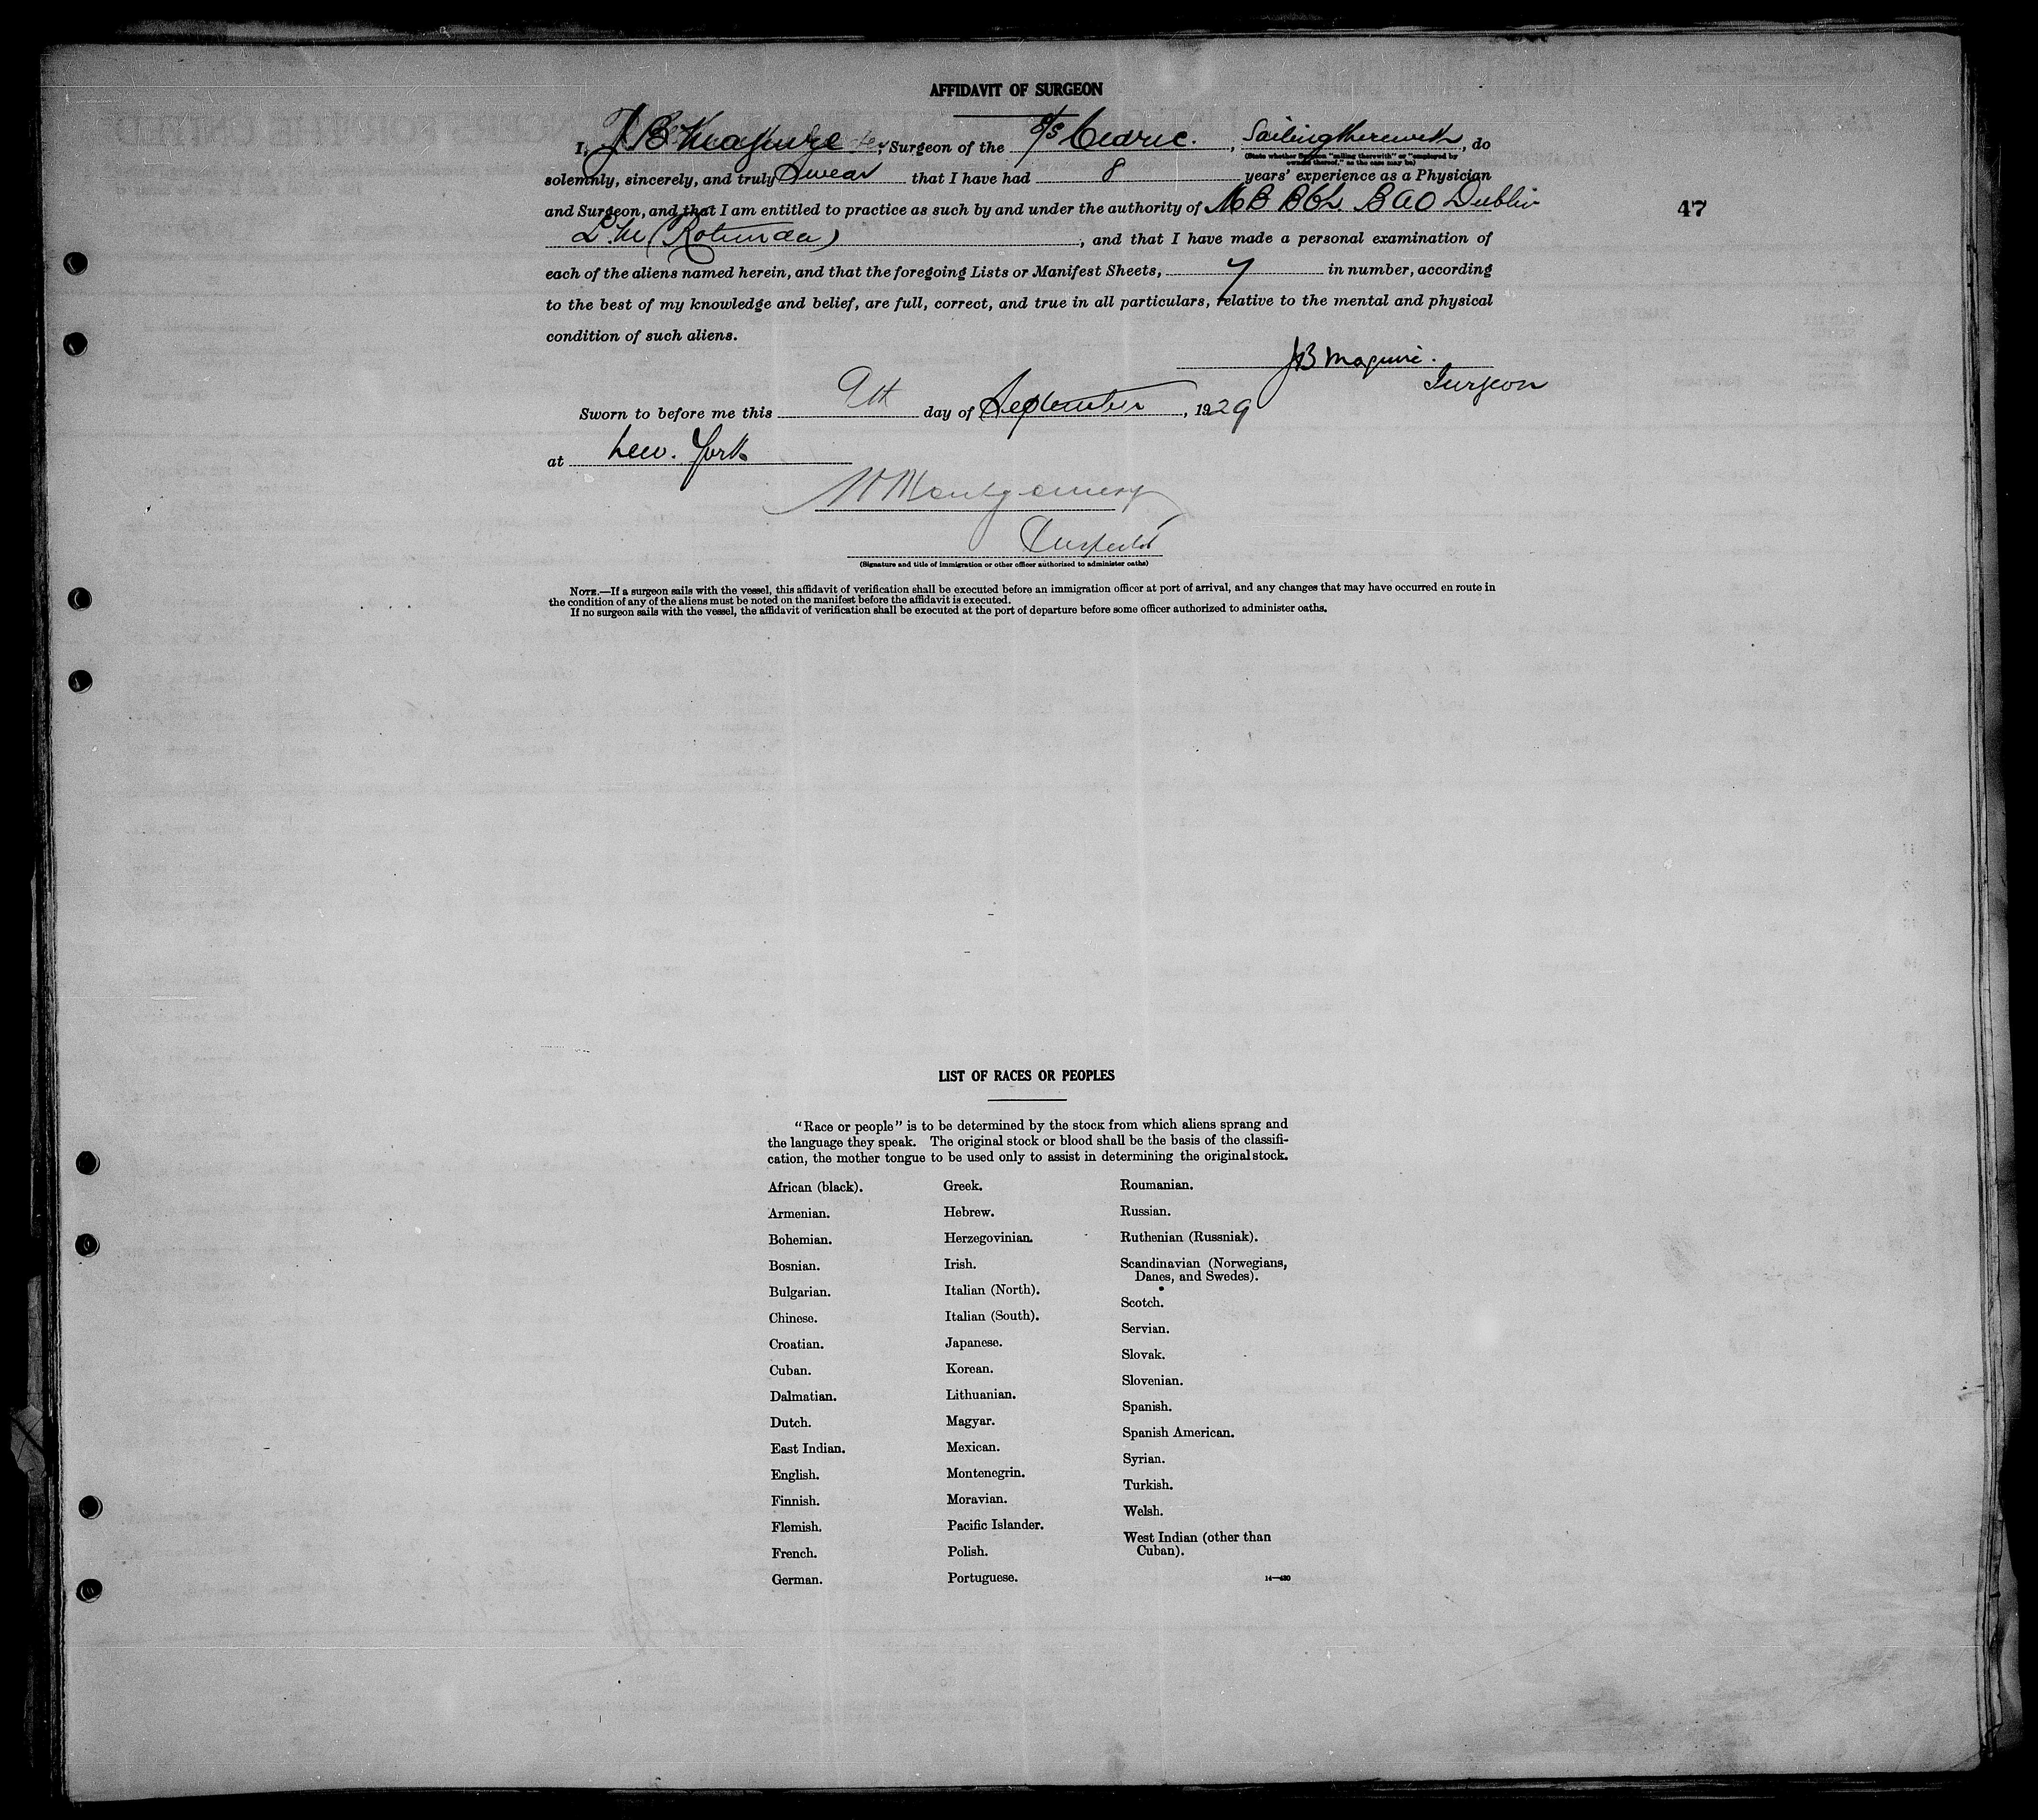 AFFIDAVIT OF SURGEON
I, J B Maguire, Surgeon of the S/S Cedric., Sailing therewith, do
(State whether Surgeon "sailing therewith" or "employed by
owners thereof," as the case may be)
solemnly, sincerely, and truly Swear that I have had 8 years' experience as a Physician
and Surgeon, and that I am entitled to practice as such by and under the authority of MB BCh. BAO Dublin
47
L.M (Rotunda), and that I have made a personal examination of
each of the aliens named herein, and that the foregoing Lists or Manifest Sheets, 7 in number, according
to the best of my knowledge and belief, are full, correct, and true in all particulars, relative to the mental and physical
condition of such aliens.
JB Maguire.
Surgeon
Sworn to before me this 9th day of September, 1929
at New York
Montgomery
Inspector
(Signature and title of immigration or other officer authorized to administer oaths)
NOTE.—If a surgeon sails with the vessel, this affidavit of verification shall be executed before an immigration officer at port of arrival, and any changes that may have occurred en route in
the condition of any of the aliens must be noted on the manifest before the affidavit is executed.
If no surgeon sails with the vessel, the affidavit of verification shall be executed at the port of departure before some officer authorized to administer oaths.
LIST OF RACES OR PEOPLES
"Race or people" is to be determined by the stock from which aliens sprang and
the language they speak. The original stock or blood shall be the basis of the classifi-
cation, the mother tongue to be used only to assist in determining the original stock.
African (black).
Armenian.
Bohemian.
Bosnian.
Bulgarian.
Chinese.
Croatian.
Cuban.
Dalmatian.
Dutch.
East Indian.
English.
Finnish.
Flemish.
French.
German.
Greek.
Hebrew.
Herzegovinian.
Irish.
Italian (North).
Italian (South).
Japanese.
Korean.
Lithuanian.
Magyar.
Mexican.
Montenegrin.
Moravian.
Pacific Islander.
Polish.
Portuguese.
Roumanian.
Russian.
Ruthenian (Russniak).
Scandinavian (Norwegians,
Danes, and Swedes).
Scotch.
Servian.
Slovak.
Slovenian.
Spanish.
Spanish American.
Syrian.
Turkish.
Welsh.
West Indian (other than
Cuban).
14—430